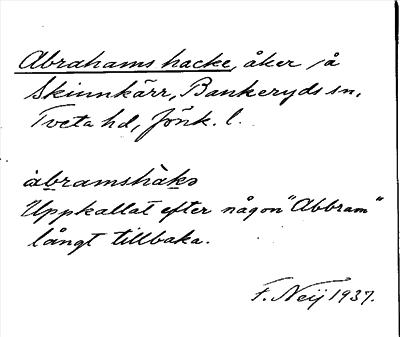 Abrahams hacke, åker å
Skinnkärr, Bankeryds sn,
Tveta hd, Jönk. l.
àbramshàkə
Uppkallat efter någon "Abbram"
långt tillbaka.
F. Neij 1937.